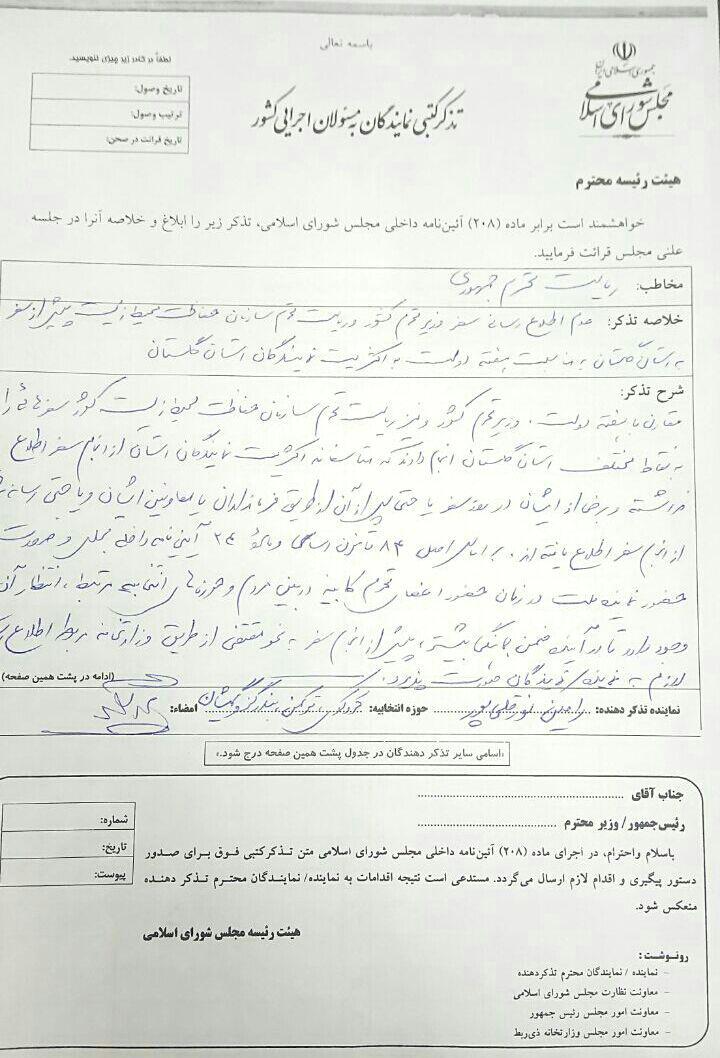 باسمه تعالی
جمهوری اسلامی ایران
مجلس شورای اسلامی
لطفاً در کادر زیر چیزی ننویسید.
تاریخ وصول:
ترتیب وصول:
تاریخ قرائت در صحن:
تذکر کتبی نمایندگان به مسئولان اجرایی کشور
هیئت رئیسه محترم
خواهشمند است برابر ماده (۲۰۸) آئین‌نامه داخلی مجلس شورای اسلامی، تذکر زیر را ابلاغ و خلاصه آنرا در جلسه
علنی مجلس قرائت فرمایید.
مخاطب: ریاست محترم جمهوری
خلاصه تذکر: عدم اطلاع رسانی سفر وزیر محترم کشور و ریاست محترم سازمان حفاظت محیط زیست پیش از سفر
به استان گلستان به مناسبت هفته دولت به اکثریت نمایندگان استان گلستان
شرح تذکر:
مقارن با هفته دولت، وزیر محترم کشور و نیز ریاست محترم سازمان حفاظت محیط زیست کشور سفرهائی را
به نقاط مختلف استان گلستان انجام دادند که متاسفانه اکثریت نمایندگان استان از انجام سفر اطلاع
نداشته و برخی از ایشان در روز سفر یا حتی پس از آن از طریق فرمانداران یا معاونین ایشان و یا حتی رسانه
از انجام سفر اطلاع یافته اند. بر اساس اصل ۸۴ قانون اساسی و آیین نامه داخلی مجلس و ضرورت
حضور نماینده ملت در زمان حضور اعضای محترم کابینه در بین مردم و حوزه های انتخابیه مرتبط، انتظار آن
وجود دارد تا در آینده ضمن هماهنگی بیشتر، پیش از انجام سفر به نحو مقتضی از طریق وزارتخانه مربوط اطلاع
لازم به نماینده / نمایندگان صورت پذیرد.
(ادامه در پشت همین صفحه)
نماینده تذکر دهنده: رامین نورقلی‌پور حوزه انتخابیه: کردکوی، ترکمن، بندرگز و گمیشان امضاء:
«اسامی سایر تذکر دهندگان در جدول پشت همین صفحه درج شود.»
جناب آقای
رئیس‌جمهور/ وزیر محترم
شماره:
تاریخ:
پیوست:
باسلام واحترام، در اجرای ماده (۲۰۸) آئین‌نامه داخلی مجلس شورای اسلامی متن تذکر کتبی فوق برای صدور
دستور پیگیری و اقدام لازم ارسال می‌گردد. مستدعی است نتیجه اقدامات به نماینده/ نمایندگان محترم تذکر دهنده
منعکس شود.
هیئت رئیسه مجلس شورای اسلامی
رونوشت:
- نماینده / نمایندگان محترم تذکردهنده
- معاونت نظارت مجلس شورای اسلامی
- معاونت امور مجلس رئیس جمهور
- معاونت امور مجلس وزارتخانه ذی‌ربط